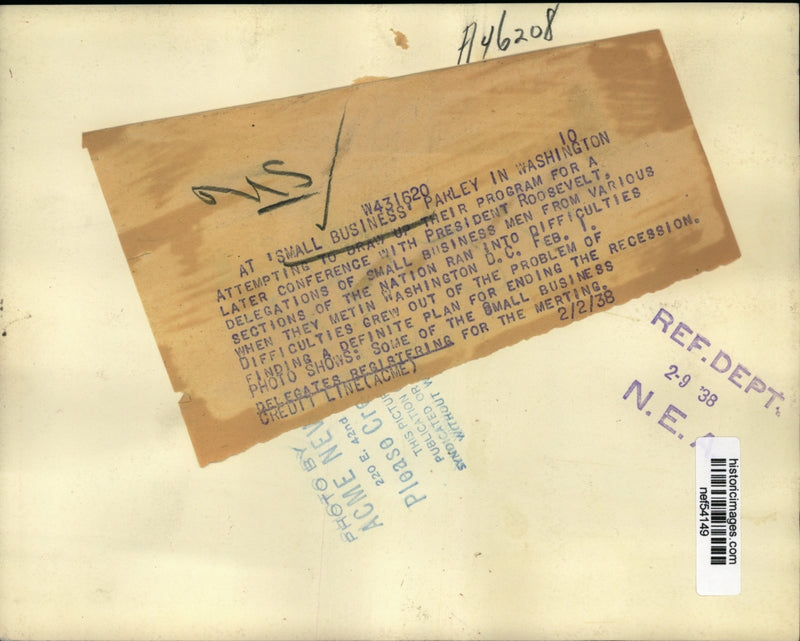 A46208
US
W431620 10
AT 'SMALL BUSINESS' PARLEY IN WASHINGTON
ATTEMPTING TO DRAW UP THEIR PROGRAM FOR A
LATER CONFERENCE WITH PRESIDENT ROOSEVELT,
DELEGATIONS OF SMALL BUSINESS MEN FROM VARIOUS
SECTIONS OF THE NATION RAN INTO DIFFICULTIES
WHEN THEY METIN WASHINGTON D.C. FEB. 1.
DIFFICULTIES GREW OUT OF THE PROBLEM OF
FINDING A DEFINITE PLAN FOR ENDING THE RECESSION.
PHOTO SHOWS: SOME OF THE SMALL BUSINESS
DELEGATES REGISTERING FOR THE MERTING.
CREDIT LINE(ACME) 2/2/38
PHOTO BY
ACME NEW
220 E. 42nd
Please Cre
THIS PICTU
PUBLICATION
SYNDICATED OR
WITHOUT
REF. DEPT.
2-9 '38
N.E.A
historicimages.com
nef54149